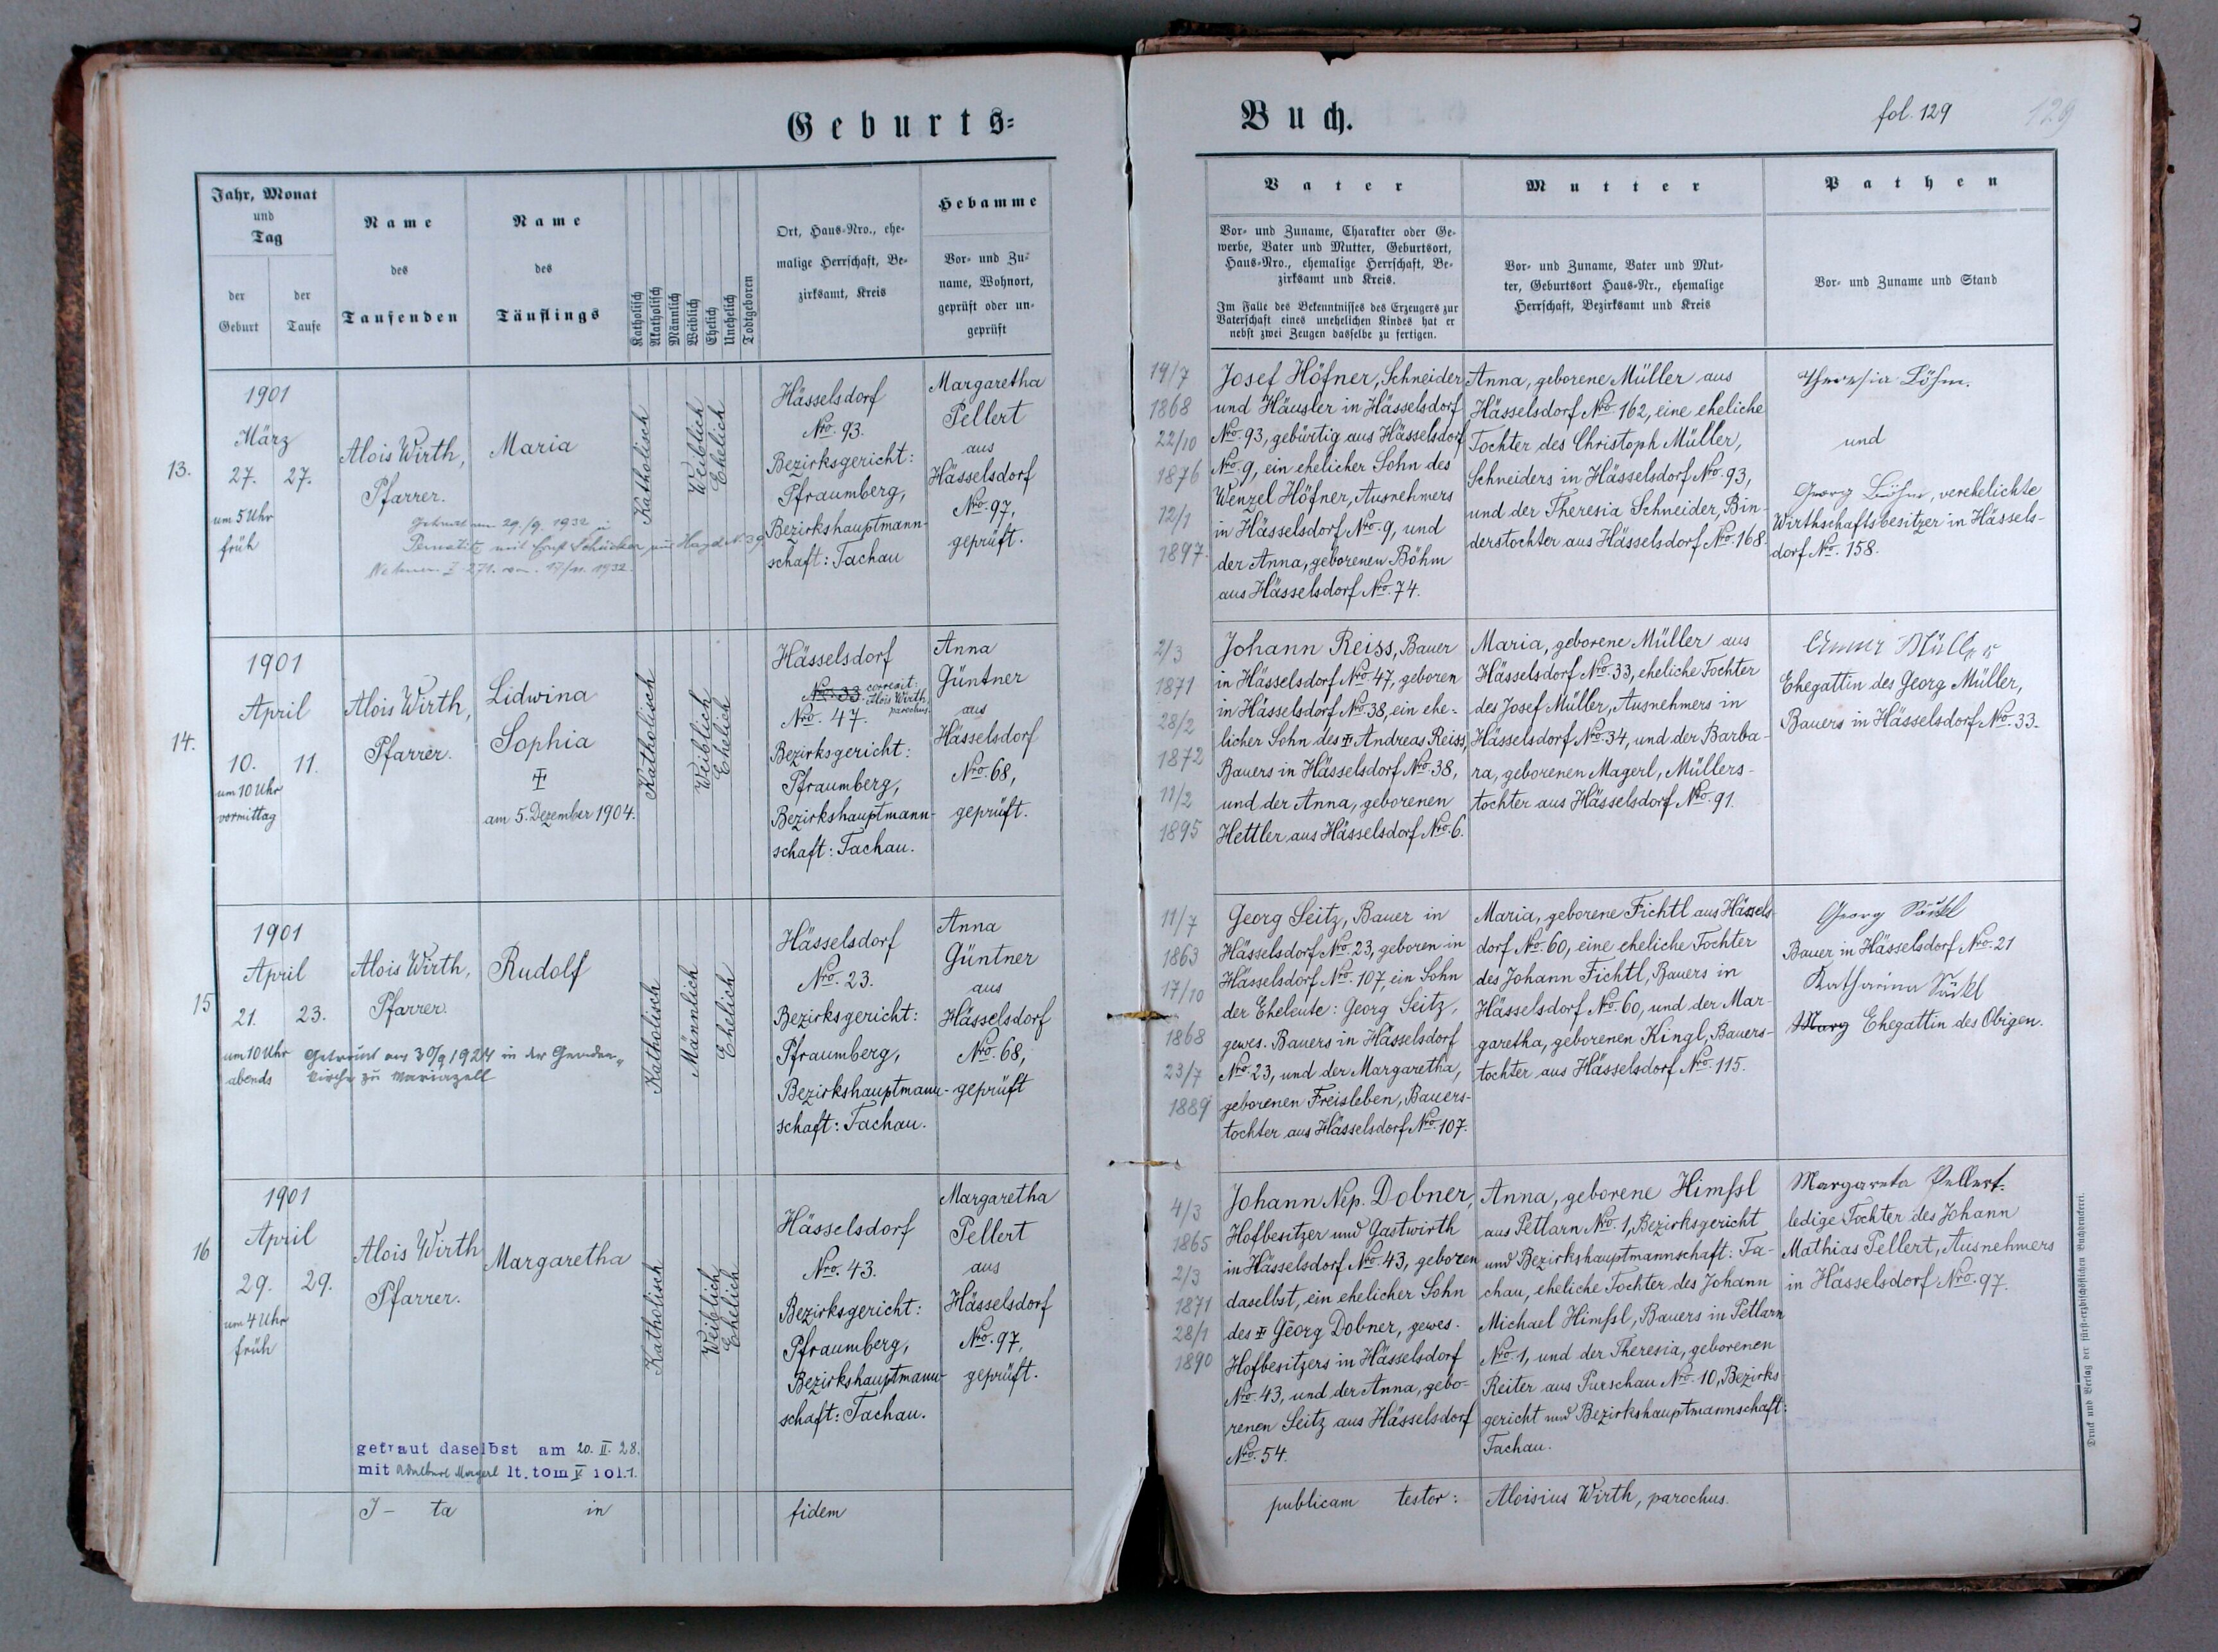 Geburts-
Buch.
fol. 129
129
Jahr, Monat
und
Tag
der
Geburt
der
Taufe
Name
des
Taufenden
Name
des
Täuflings
Katholisch
Akatholisch
Männlich
Weiblich
Ehelich
Unehelich
Todtgeboren
Ort, Haus-Nro., ehe-
malige Herrschaft, Be-
zirksamt, Kreis
Hebamme
Vor- und Zu-
name, Wohnort,
geprüft oder un-
geprüft
Vater
Vor- und Zuname, Charakter oder Ge-
werbe, Vater und Mutter, Geburtsort,
Haus-Nro., ehemalige Herrschaft, Be-
zirksamt und Kreis.
Im Falle des Bekenntnisses des Erzeugers zur
Vaterschaft eines unehelichen Kindes hat er
nebst zwei Zeugen dasselbe zu fertigen.
Mutter
Vor- und Zuname, Vater und Mut-
ter, Geburtsort Haus-Nr., ehemalige
Herrschaft, Bezirksamt und Kreis
Pathen
Vor- und Zuname und Stand
13.
1901
März
27. 27.
um 5 Uhr
früh
Alois Wirth,
Pfarrer.
Maria
29./9. 1932 in
mit
271. 17/11. 1932.
Katholisch
Weiblich
Ehelich
Hässelsdorf
Nro. 93.
Bezirksgericht:
Pfraumberg,
Bezirkshauptmann-
schaft: Tachau
Margaretha
Pellert
aus
Hässelsdorf
Nro. 97,
geprüft.
19/7
1868
22/10
1876
12/1
1897.
Josef Höfner, Schneider
und Häusler in Hässelsdorf
Nro. 93, gebürtig aus Hässelsdorf
Nro. 9, ein ehelicher Sohn des
Wenzel Höfner, Ausnehmers
in Hässelsdorf Nro. 9, und
der Anna, geborenen Böhm
aus Hässelsdorf Nro. 74.
Anna, geborene Müller aus
Hässelsdorf Nro. 162, eine eheliche
Tochter des Christoph Müller,
Schneiders in Hässelsdorf Nro. 93,
und der Theresia Schneider, Bin-
derstochter aus Hässelsdorf Nro. 168.
Theresia Böhm.
und
Georg Böhm, verehelichte
Wirthschaftsbesitzer in Hässels-
dorf Nro. 158.
14.
1901
April
10. 11.
um 10 Uhr
vormittag
Alois Wirth,
Pfarrer.
Lidwina
Sophia
am 5. Dezember 1904.
Katholisch
Weiblich
Ehelich
Hässelsdorf
Nro. 33 correxit:
Alois Wirth,
parochus.
Nro. 47.
Bezirksgericht:
Pfraumberg,
Bezirkshauptmann-
schaft: Tachau.
Anna
Güntner
aus
Hässelsdorf
Nro. 68,
geprüft.
2/3
1871
28/2
1872
11/2
1895
Johann Reiss, Bauer
in Hässelsdorf Nro. 47, geboren
in Hässelsdorf Nro. 38, ein ehe-
licher Sohn des ‡ Andreas Reiss,
Bauers in Hässelsdorf Nro. 38,
und der Anna, geborenen
Hettler aus Hässelsdorf Nro. 6.
Maria, geborene Müller aus
Hässelsdorf Nro. 33, eheliche Tochter
des Josef Müller, Ausnehmers in
Hässelsdorf Nro. 34, und der Barba-
ra, geborenen Magerl, Müllers-
tochter aus Hässelsdorf Nro. 91.
Anna Müller
Ehegattin des Georg Müller,
Bauers in Hässelsdorf Nro. 33.
15
1901
April
21. 23.
um 10 Uhr
abends
Alois Wirth,
Pfarrer.
Rudolf
Getraut am 30/9 1924 in der Gnaden-
kirche zu Mariazell
Katholisch
Männlich
Ehelich
Hässelsdorf
Nro. 23.
Bezirksgericht:
Pfraumberg,
Bezirkshauptmann-
schaft: Tachau.
Anna
Güntner
aus
Hässelsdorf
Nro. 68,
geprüft
11/7
1863
17/10
1868
23/7
1889
Georg Seitz, Bauer in
Hässelsdorf Nro. 23, geboren in
Hässelsdorf Nro. 107, ein Sohn
der Eheleute: Georg Seitz,
gewes. Bauers in Hässelsdorf
Nro. 23, und der Margaretha,
geborenen Freisleben, Bauers-
tochter aus Hässelsdorf Nro. 107.
Maria, geborene Fichtl aus Hässels-
dorf Nro. 60, eine eheliche Tochter
des Johann Fichtl, Bauers in
Hässelsdorf Nro. 60, und der Mar-
garetha, geborenen Kingl, Bauers-
tochter aus Hässelsdorf Nro. 115.
Georg
Bauer in Hässelsdorf Nro. 21
Katharina
Marg Ehegattin des Obigen.
16
1901
April
29. 29.
um 4 Uhr
früh
Alois Wirth
Pfarrer.
Margaretha
getraut daselbst am 20. II. 28.
mit Magerl lt. tom V fol. 1.
Katholisch
Weiblich
Ehelich
Hässelsdorf
Nro. 43.
Bezirksgericht:
Pfraumberg,
Bezirkshauptmann-
schaft: Tachau.
Margaretha
Pellert
aus
Hässelsdorf
Nro. 97,
geprüft.
4/3
1865
2/3
1871
28/1
1890
Johann Nep. Dobner,
Hofbesitzer und Gastwirth
in Hässelsdorf Nro. 43, geboren
daselbst, ein ehelicher Sohn
des ‡ Georg Dobner, gewes.
Hofbesitzers in Hässelsdorf
Nro. 43, und der Anna, gebo-
renen Seitz aus Hässelsdorf
Nro. 54.
Anna, geborene Himßl
aus Petlarn Nro. 1, Bezirksgericht
und Bezirkshauptmannschaft: Ta-
chau, eheliche Tochter des Johann
Michael Himßl, Bauers in Petlarn
Nro. 1, und der Theresia, geborenen
Reiter aus Purschau Nro. 10, Bezirks-
gericht und Bezirkshauptmannschaft:
Tachau.
Margareta Pellert.
ledige Tochter des Johann
Mathias Pellert, Ausnehmers
in Hässelsdorf Nro. 97.
I - ta in fidem publicam testor: Aloisius Wirth, parochus.
Druck und Verlag der fürst-erzbischöflichen Buchdruckerei.